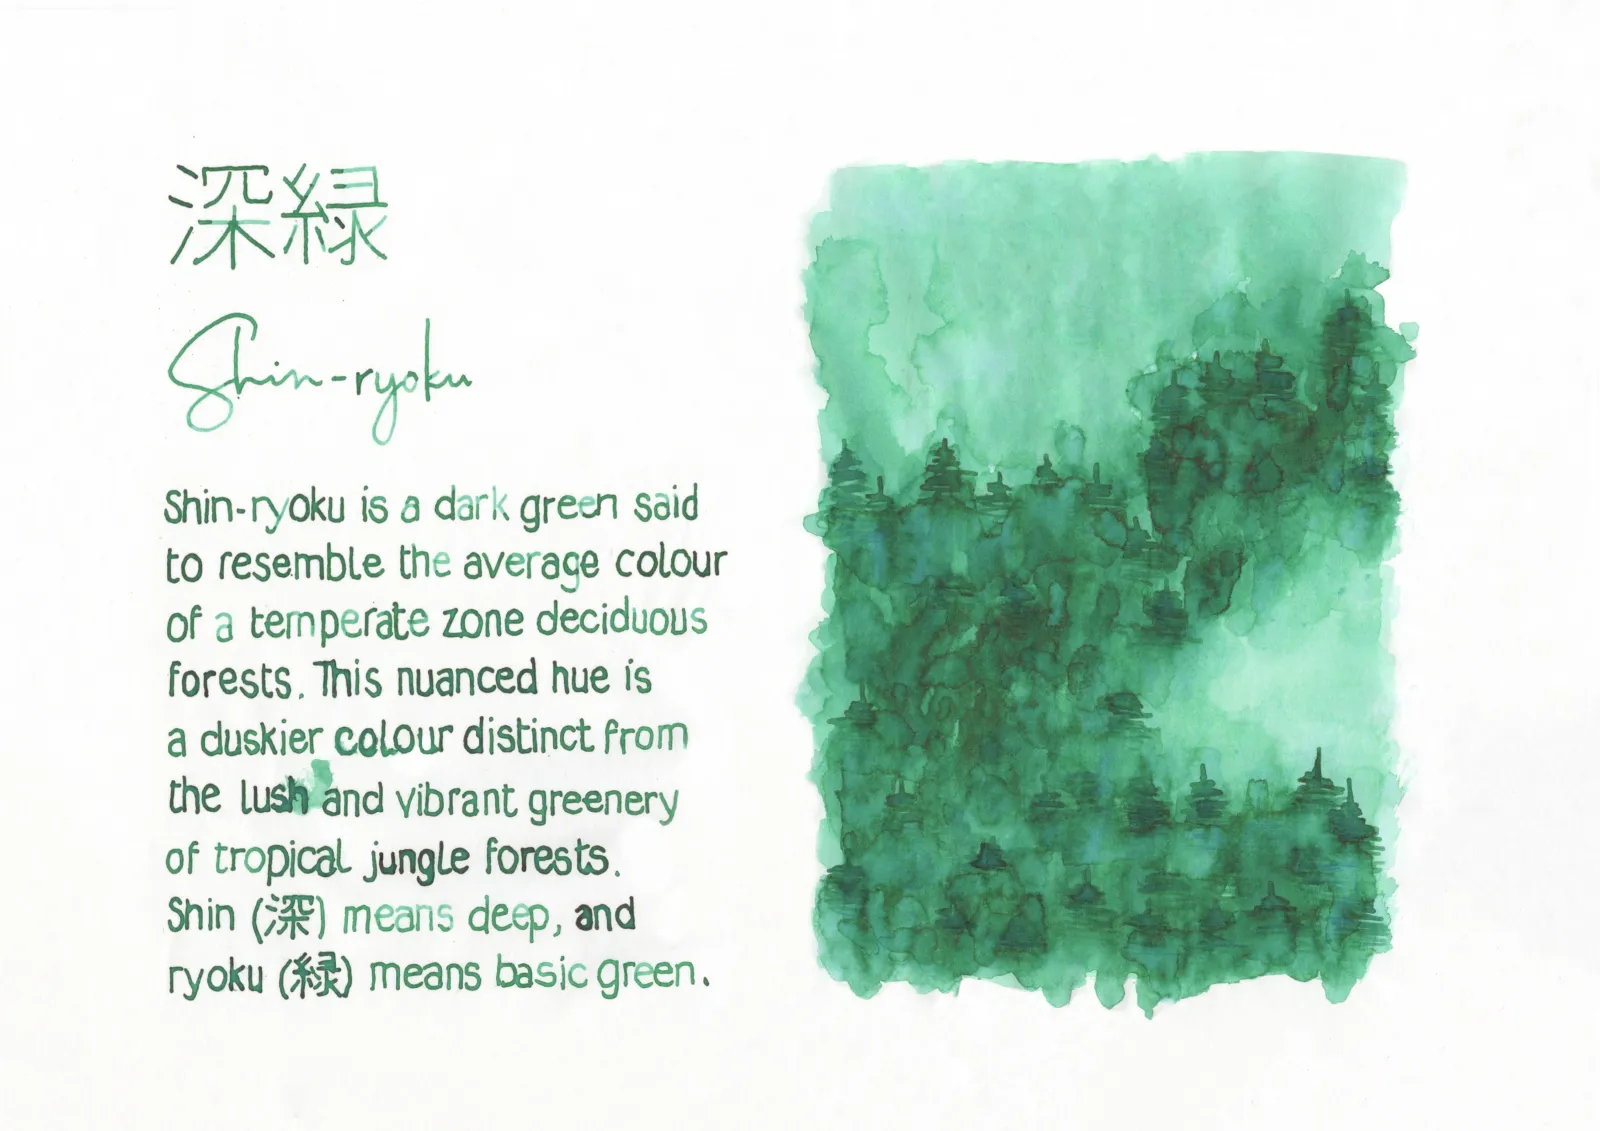 深緑
Shin-ryoku
Shin-ryoku is a dark green said
to resemble the average colour
of a temperate zone deciduous
forests. This nuanced hue is
a duskier colour distinct from
the lush and vibrant greenery
of tropical jungle forests.
Shin (深) means deep, and
ryoku (緑) means basic green.